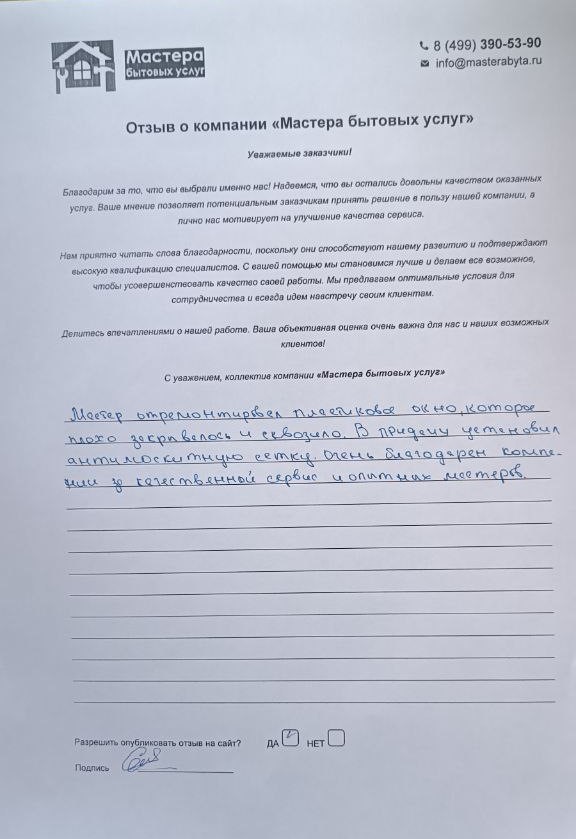 Мастера
бытовых услуг
8 (499) 390-53-90
info@masterabyta.ru
Отзыв о компании «Мастера бытовых услуг»
Уважаемые заказчики!
Благодарим за то, что вы выбрали именно нас! Надеемся, что вы остались довольны качеством оказанных
услуг. Ваше мнение позволяет потенциальным заказчикам принять решение в пользу нашей компании, а
лично нас мотивирует на улучшение качества сервиса.
Нам приятно читать слова благодарности, поскольку они способствуют нашему развитию и подтверждают
высокую квалификацию специалистов. С вашей помощью мы становимся лучше и делаем все возможное,
чтобы усовершенствовать качество своей работы. Мы предлагаем оптимальные условия для
сотрудничества и всегда идем навстречу своим клиентам.
Делитесь впечатлениями о нашей работе. Ваша объективная оценка очень важна для нас и наших возможных
клиентов!
С уважением, коллектив компании «Мастера бытовых услуг»
Мастер отремонтировал пластиковое окно, которое
плохо закрывалось и сквозило. В придачу установил
антимоскитную сетку. Очень благодарен компа-
нии за качественной сервис и опытных мастеров.
Разрешить опубликовать отзыв на сайт? ДА НЕТ
Подпись